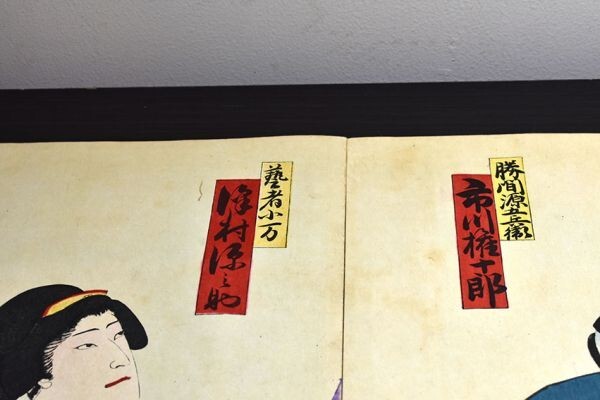 勝間源五兵衛
市川権十郎
藝者小万
澤村源之助